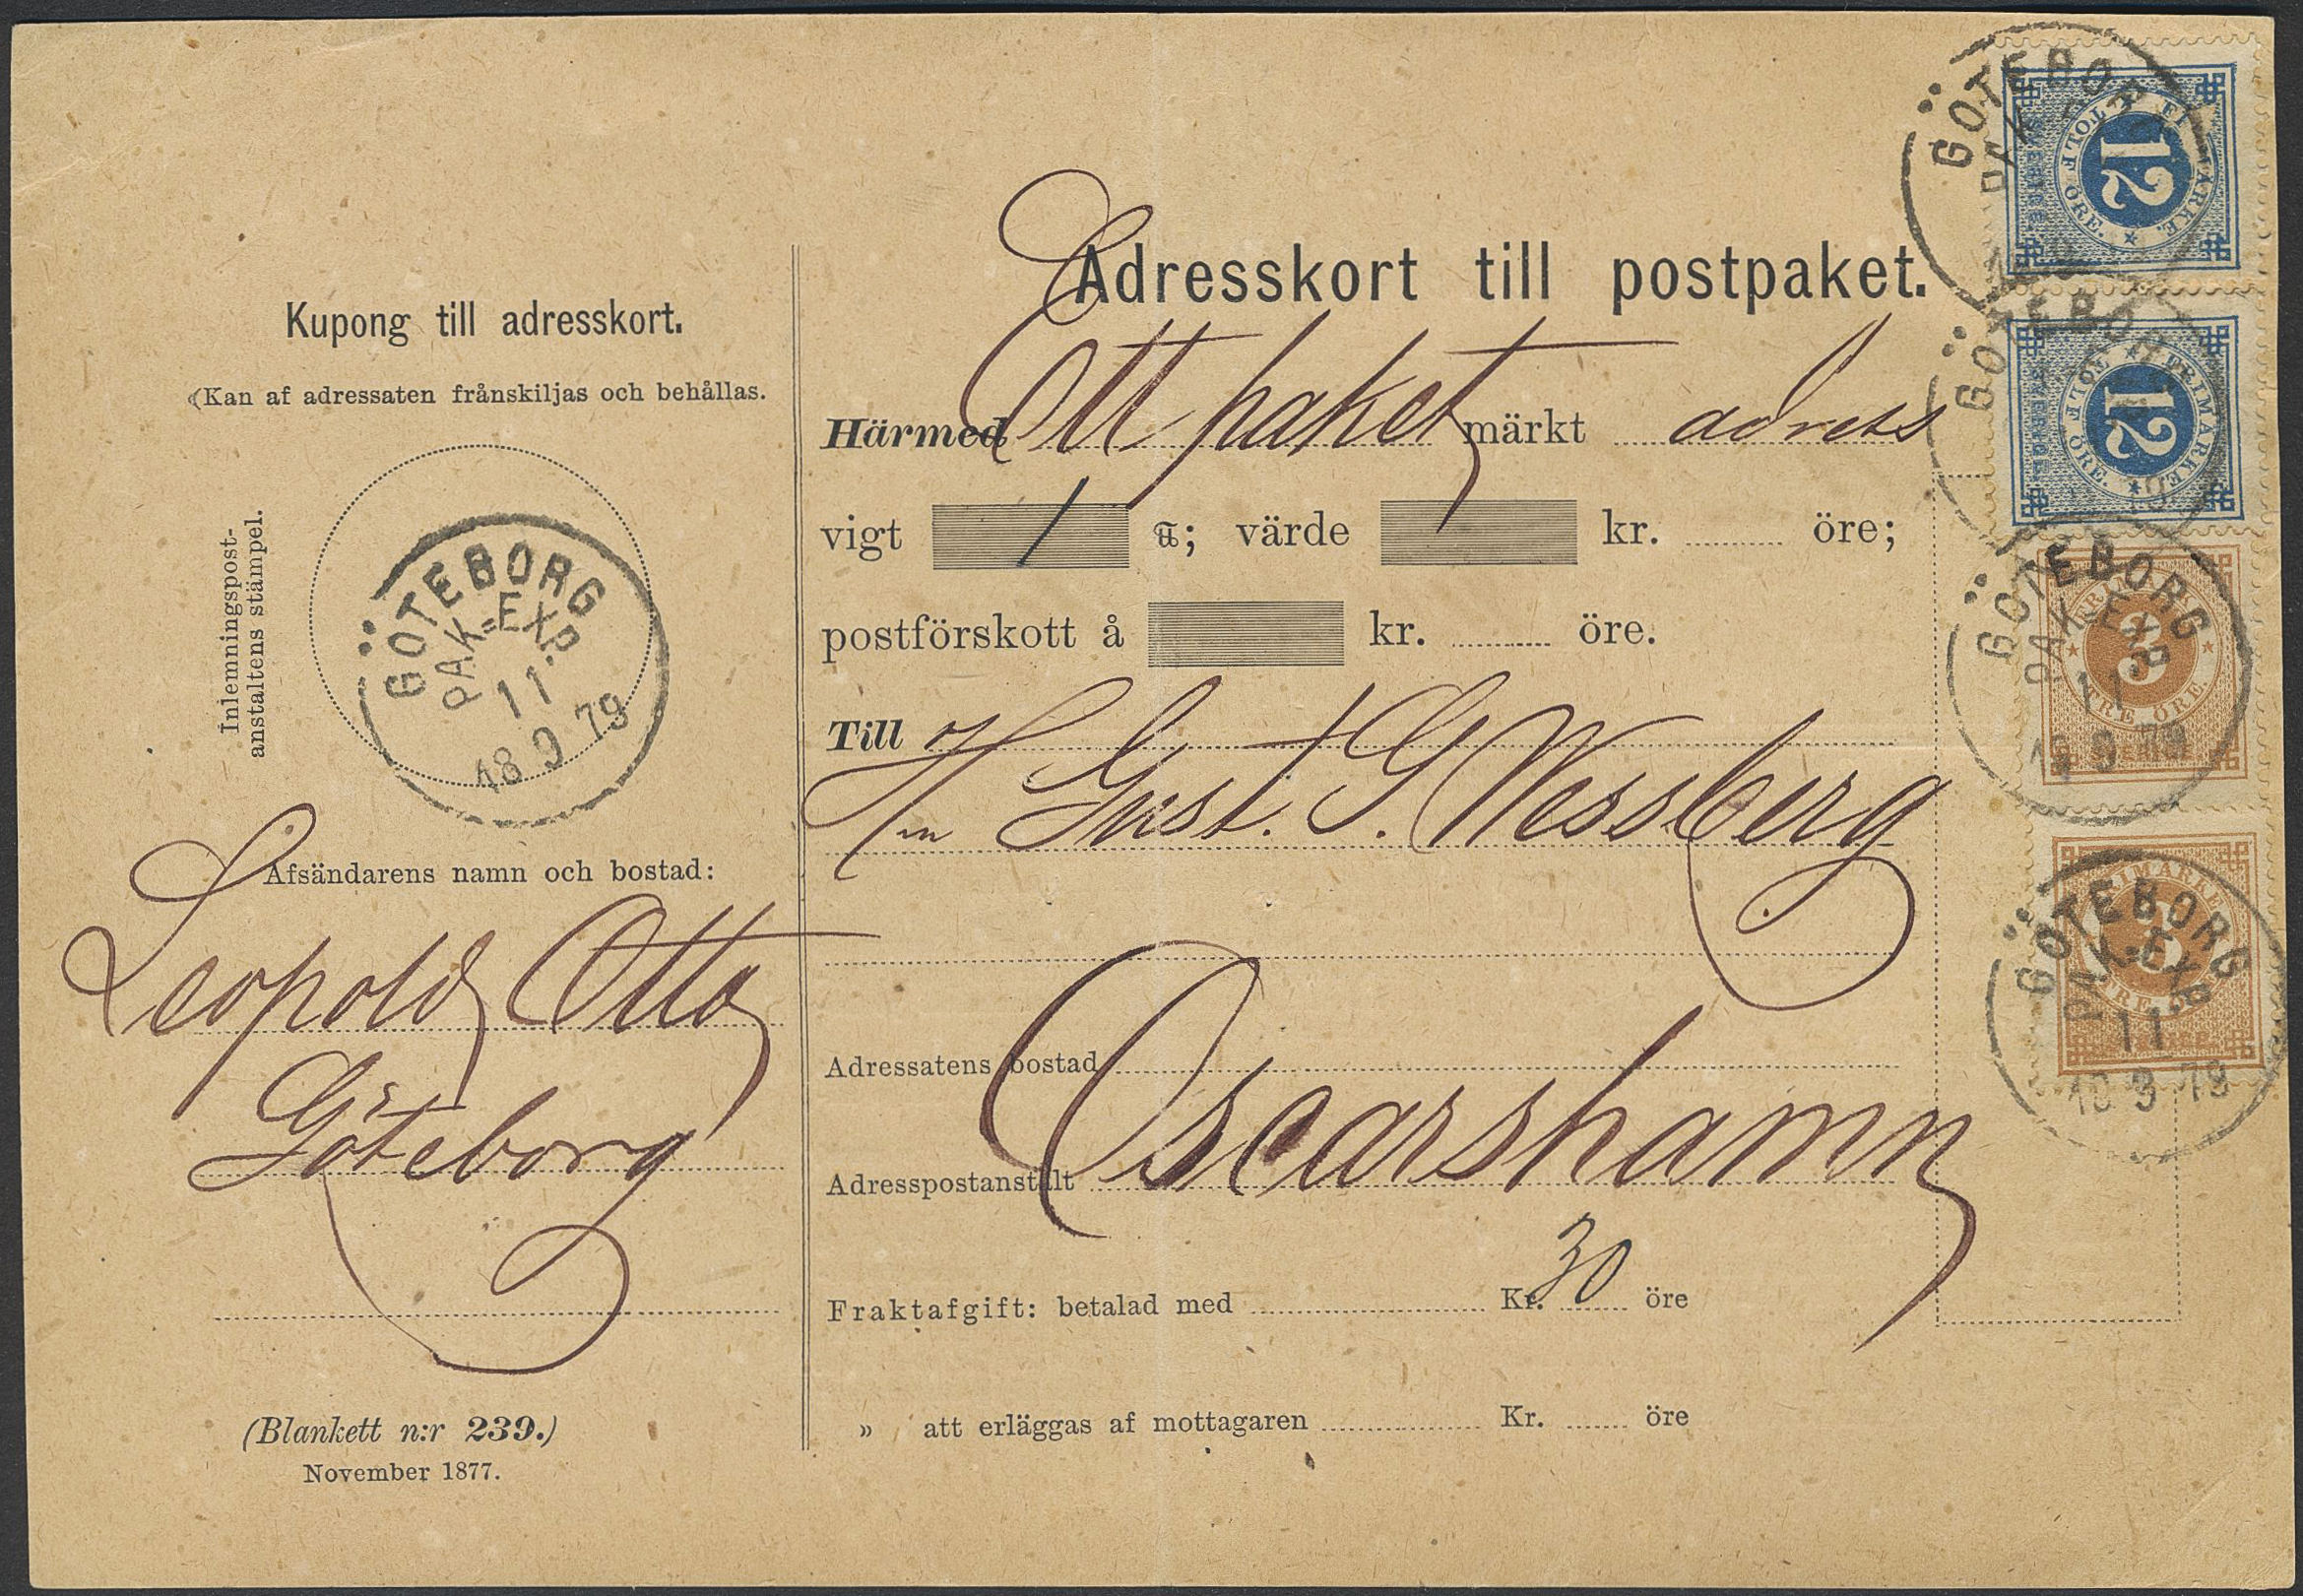 Kupong till adresskort.
(Kan af adressaten frånskiljas och behållas.
Inlemningspost-
anstaltens stämpel.
GÖTEBORG
PAK=EXP.
11
18 9 79
Afsändarens namn och bostad:
Leopold Otto
Göteborg
(Blankett n:r 239.)
November 1877.
Adresskort till postpaket.
Härmed Ett paket märkt adress
vigt 1 ℔; värde kr. öre;
postförskott å kr. öre.
Till
Hrn Gust. G. Wessberg
Adressatens bostad
Adresspostanstalt Oscarshamn
Fraktafgift: betalad med Kr. 30 öre
» att erläggas af mottagaren Kr. öre
GÖTEBO
PAK
FRIMÄRKE.
TOLF ÖRE.
SVERIGE
12
GÖTEBOR
FRIMÄRKE.
TOLF ÖRE.
SVERIGE
12
GÖTEBORG
PAK=EXP.
11
9 79
FRIM
3
TRE ÖRE.
SVERIGE
GÖTEBORG
PAK=EXP.
11
9 79
FRIMÄRKE
3
TRE